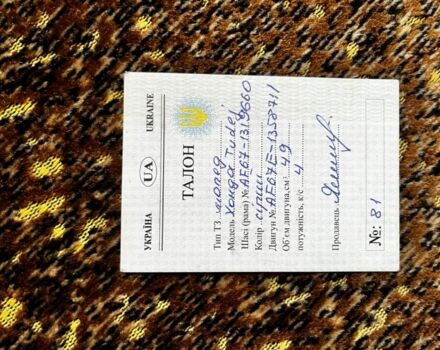 УКРАЇНА UA UKRAINE
ТАЛОН
Тип ТЗ мопед
Модель Хонда Tudej
Шасі (рама) № AF67-1319660
Колір сірий
Двигун № AF67E-1358711
Об'єм двигуна, см³ 49
потужність, к/с 4
Продавець
№: 81